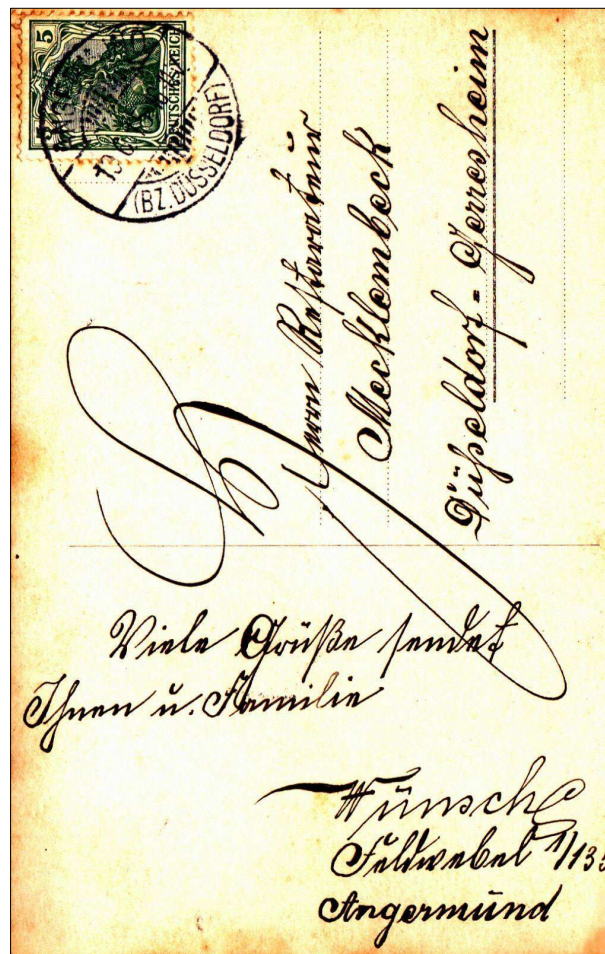 5
DEUTSCHES REICH
(BZ. DÜSSELDORF)
Herrn Restarateur
Mecklembeck
Düsseldorf-Gerresheim
Viele Grüße sendet
Ihnen u. Familie
Wünsche
Feldwebel 1/135
Angermund